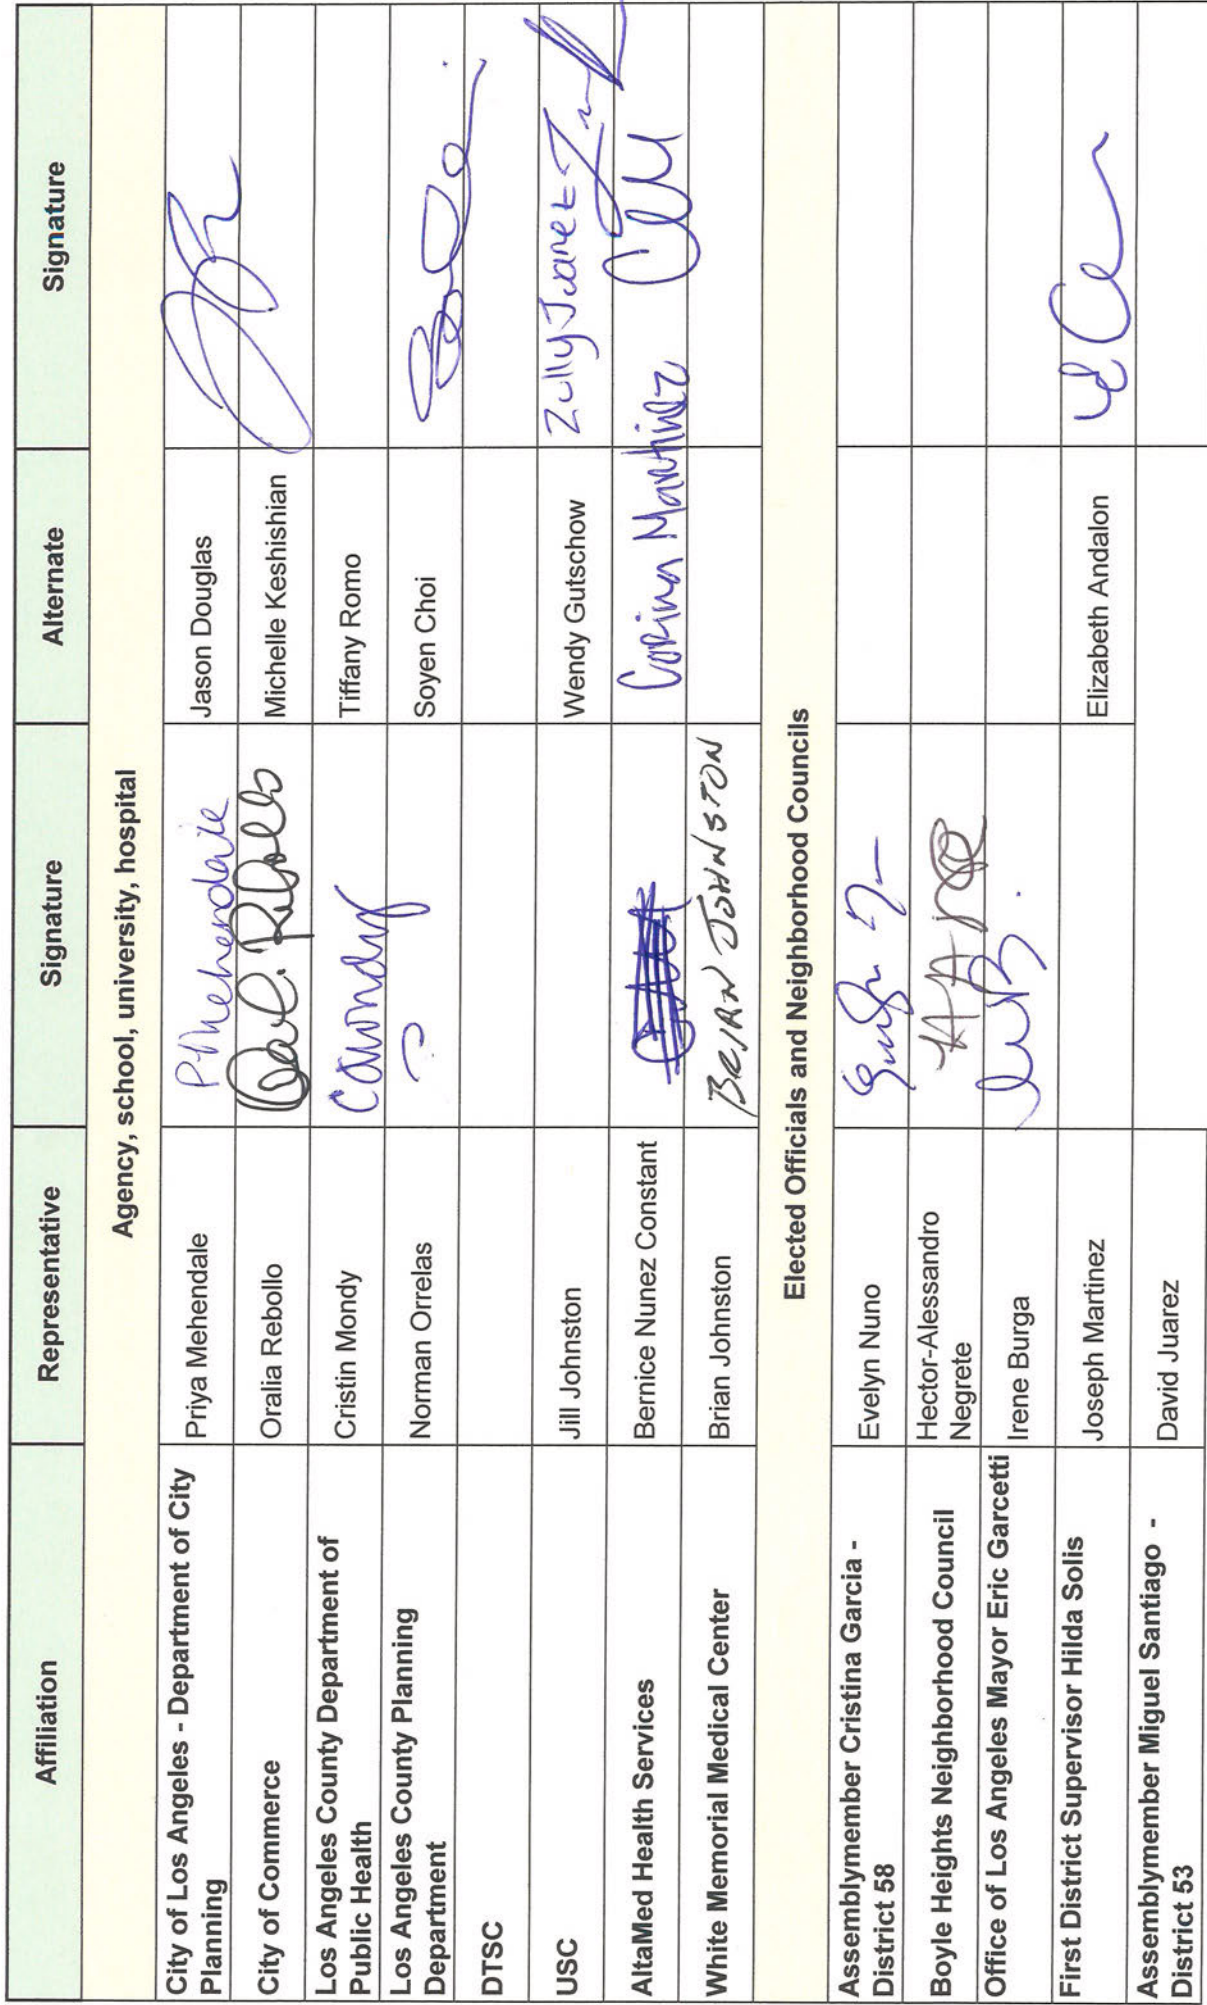 Affiliation Representative Signature Alternate Signature
Agency, school, university, hospital
City of Los Angeles - Department of City Priya Mehendale PMehendale Jason Douglas
Planning
City of Commerce Oralia Rebollo Michelle Keshishian
Los Angeles County Department of Cristin Mondy Tiffany Romo
Public Health
Los Angeles County Planning Norman Orrelas Soyen Choi
Department
DTSC
USC Jill Johnston Wendy Gutschow Zully Juarez
AltaMed Health Services Bernice Nunez Constant Corina Martinez
White Memorial Medical Center Brian Johnston BRIAN JOHNSTON
Elected Officials and Neighborhood Councils
Assemblymember Cristina Garcia - Evelyn Nuno
District 58
Boyle Heights Neighborhood Council Hector-Alessandro
Negrete
Office of Los Angeles Mayor Eric Garcetti Irene Burga
First District Supervisor Hilda Solis Joseph Martinez Elizabeth Andalon
Assemblymember Miguel Santiago - David Juarez
District 53